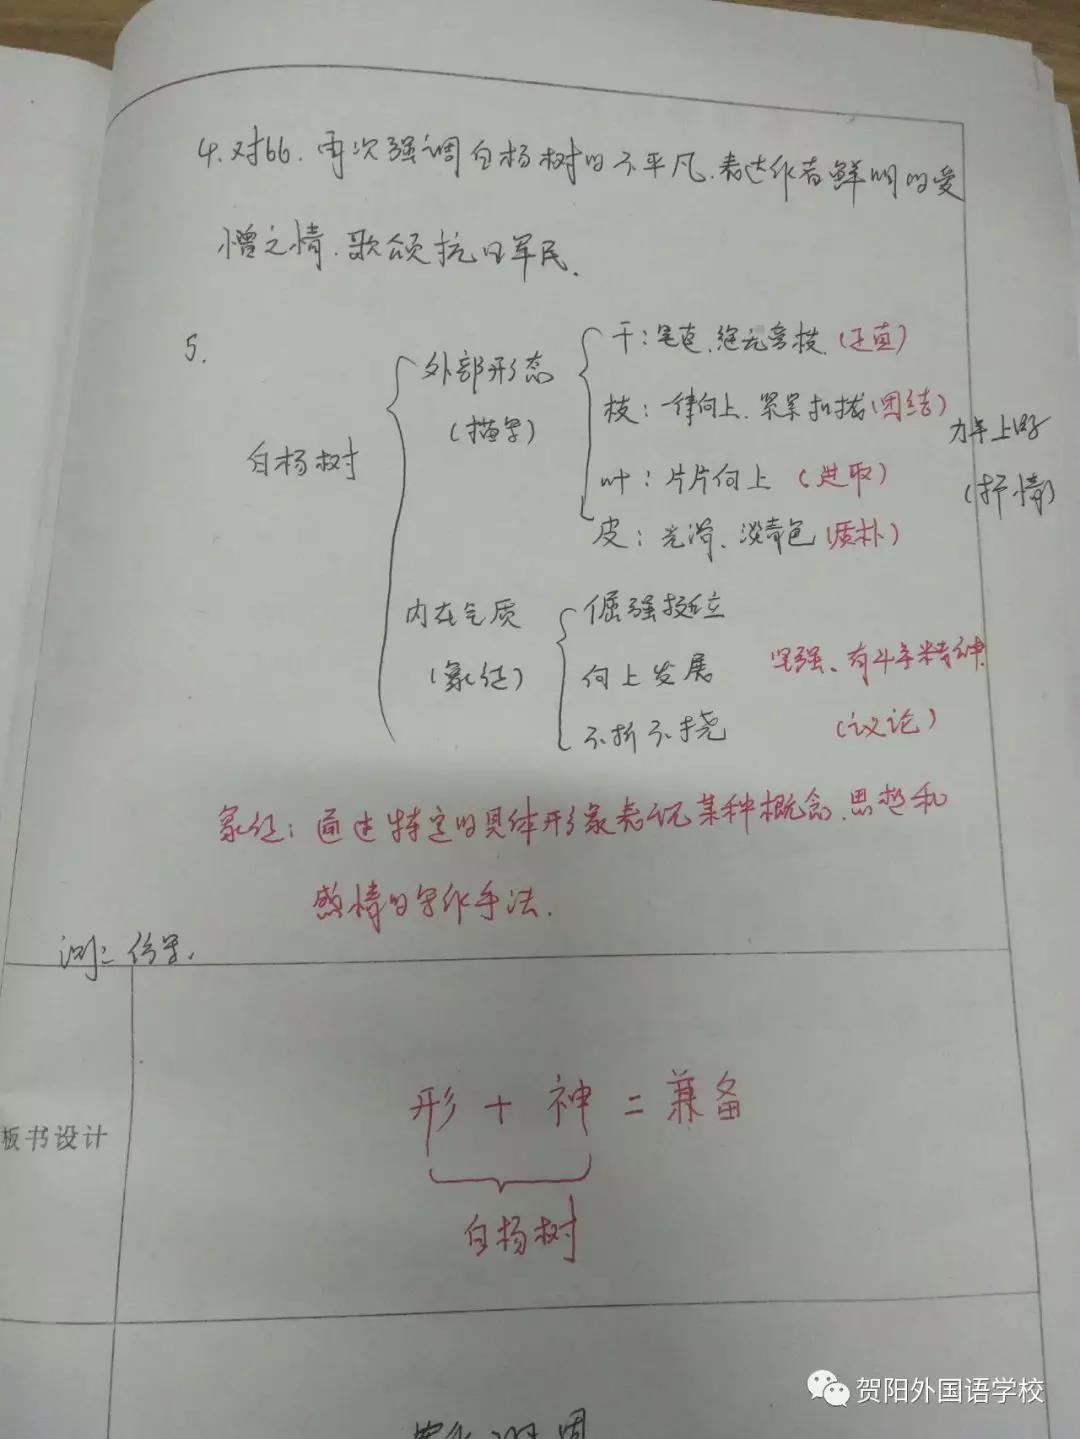 4.对比.再次强调白杨树的不平凡.表达作者鲜明的爱
憎之情.歌颂抗日军民.
5.
白杨树
外部形态
(描写)
干:笔直.绝无旁枝.(正直)
枝:一律向上.紧紧扣拢(团结)
叶:片片向上 (进取)
皮:光滑、淡青色(质朴)
力争上游
(抒情)
内在气质
(象征)
倔强挺立
向上发展
不折不挠
坚强、有斗争精神.
(议论)
象征:通过特定的具体形象表现某种概念.思想和
感情的写作手法.
仿写.
板书设计
形 + 神 = 兼备
白杨树
贺阳外国语学校